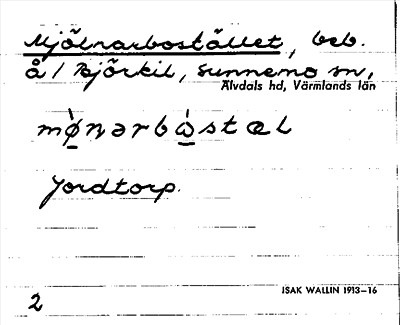 Mjölnarbostället, beb.
å / Björkil, Sunnemo sn,
Älvdals hd, Värmlands län
Jordtorp.
ISAK WALLIN 1913–16
2